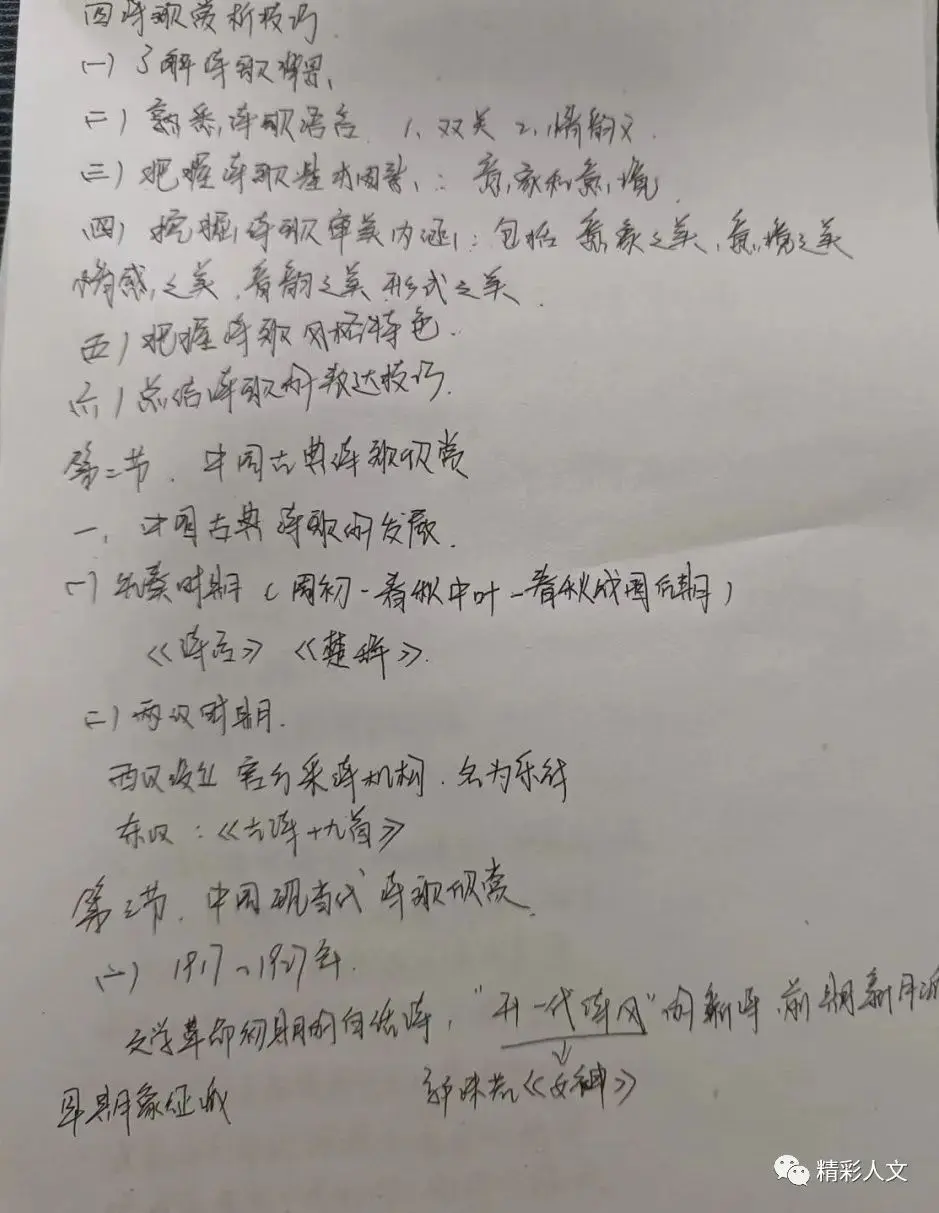 四诗歌赏析技巧
(一)了解诗歌背景、
(二)熟悉诗歌语言 1、双关 2、情韵义.
(三)把握诗歌基本因素: 意象和意境
(四)挖掘诗歌审美内涵: 包括意象之美、意境之美
情感之美、音韵之美 形式之美.
(五)把握诗歌风格特色.
(六)总结诗歌的表达技巧.
第二节. 中国古典诗歌欣赏
一、中国古典诗歌的发展.
(一)先秦时期(周初-春秋中叶-春秋战国后期)
《诗经》《楚辞》.
(二)两汉时期.
西汉设立官方采诗机构. 名为乐府
东汉:《古诗十九首》
第三节. 中国现当代诗歌欣赏
(一) 1917~1927年.
文学革命初期的白话诗,"开一代诗风"的新诗、前期新月派
早期象征派
郭沫若《女神》
精彩人文